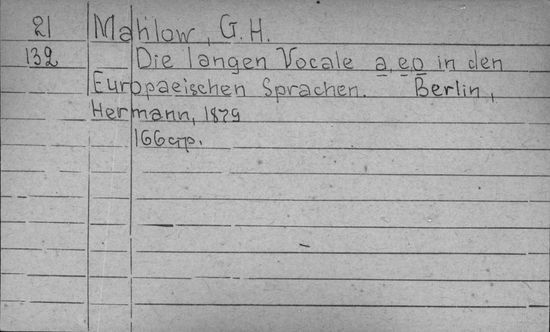 21 Mahlow, G. H.
132 Die langen Vocale a, e, o in den
Europaeischen Sprachen. Berlin,
Hermann, 1879
166 стр.